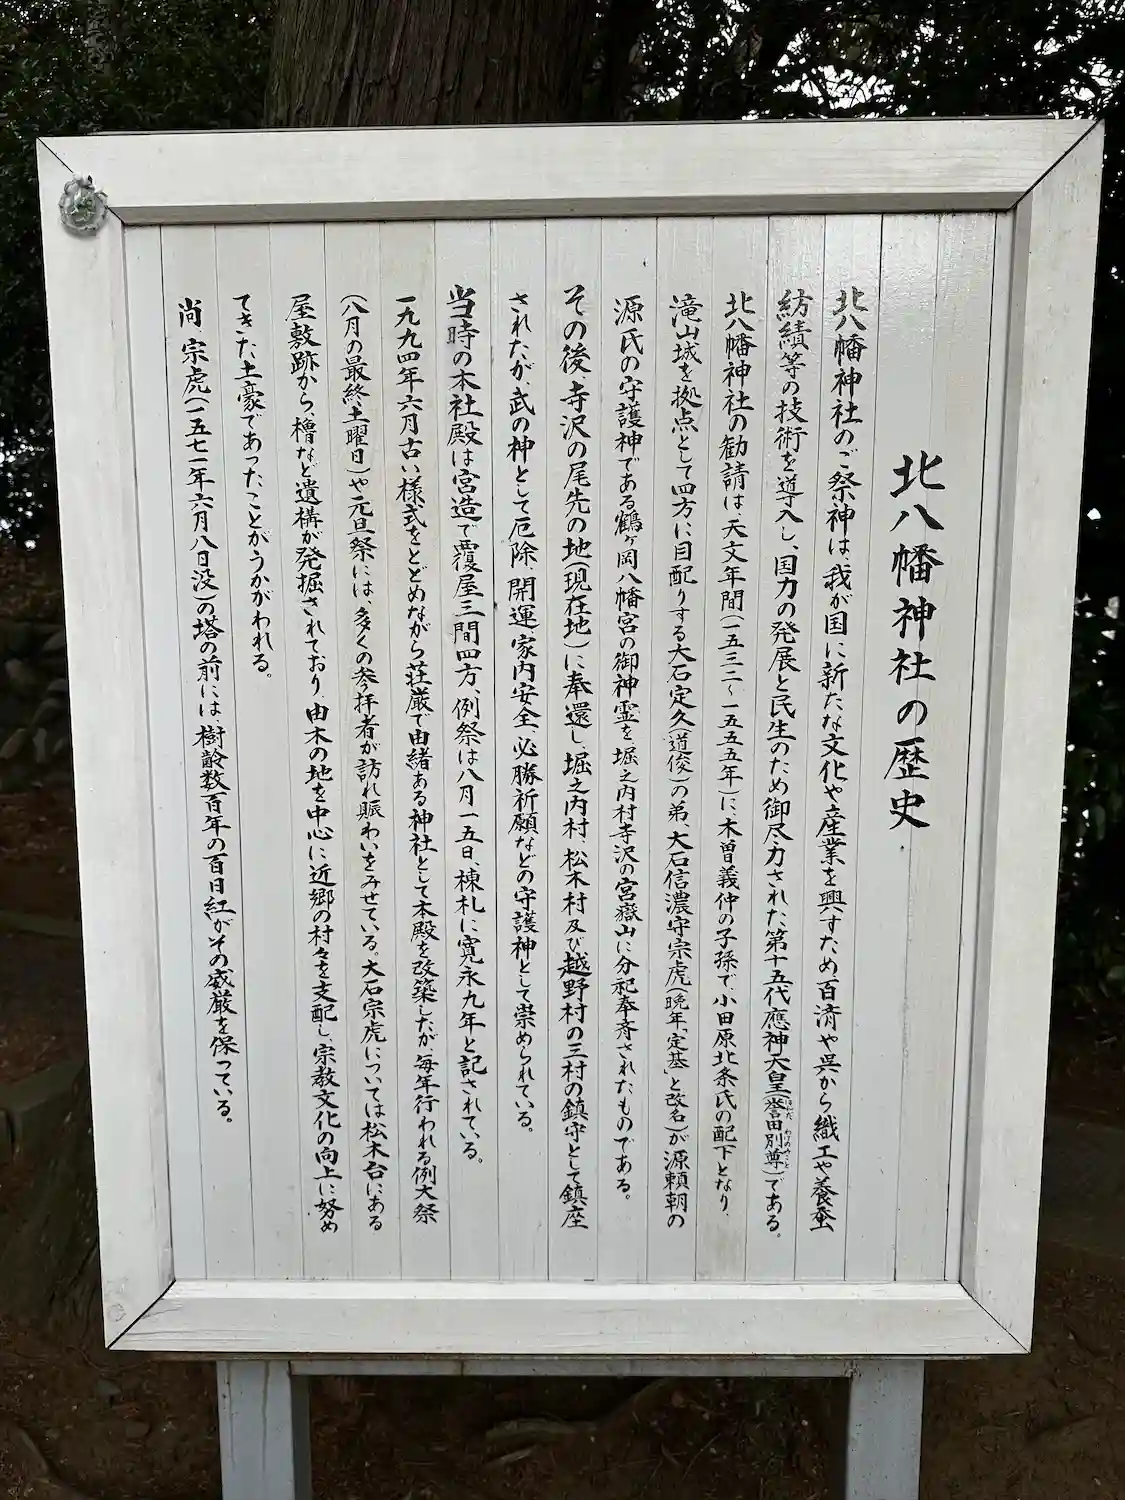 北八幡神社の歴史
北八幡神社のご祭神は、我が国に新たな文化や産業を興すため、百済や呉から織工や養蚕
紡績等の技術を導入し、国力の発展と民生のため御尽力された第十五代應神天皇(誉田別尊)である。
ほんだ わけのみこと
北八幡神社の勧請は、天文年間(一五三二〜一五五五年)に、木曽義仲の子孫で、小田原北条氏の配下となり、
滝山城を拠点として四方に目配りする大石定久(道俊)の弟、大石信濃守宗虎(晩年「定基」と改名)が源頼朝の
源氏の守護神である鶴ヶ岡八幡宮の御神霊を堀之内村寺沢の宮嶽山に分祀奉斉されたものである。
その後寺沢の尾先の地(現在地)に奉還し、堀之内村、松木村及び越野村の三村の鎮守として鎮座
されたが、武の神として厄除、開運、家内安全、必勝祈願などの守護神として崇められている。
当時の本社殿は宮造で覆屋三間四方、例祭は八月一五日、棟札に寛永九年と記されている。
一九九四年六月古い様式をとどめながら荘厳で由緒ある神社として本殿を改築したが、毎年行われる例大祭
(八月の最終土曜日)や元旦祭には、多くの参拝者が訪れ賑わいをみせている。大石宗虎については松木台にある
屋敷跡から、櫓など遺構が発掘されており、由木の地を中心に近郷の村々を支配し、宗教文化の向上に努め
てきた土豪であったことがうかがわれる。
尚、宗虎(一五七一年六月八日没)の塔の前には、樹齢数百年の百日紅がその威厳を保っている。